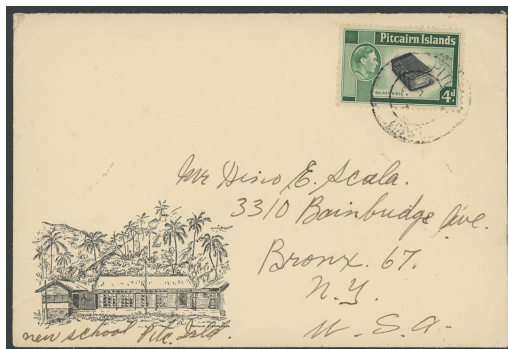 Pitcairn Islands
4d
Mr E. Scala.
3310 Bainbridge Ave.
Bronx. 67.
N.Y.
U.S.A.
new school Pitc. Isld.